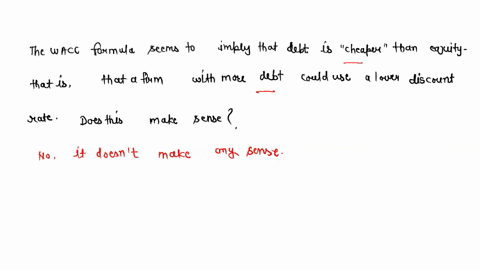 The WACC formula seems to imply that debt is "cheaper" than equity-
that is, that a form with more debt could use a lover discount
rate. Does this make sense?
No. it doesn't make any sense.